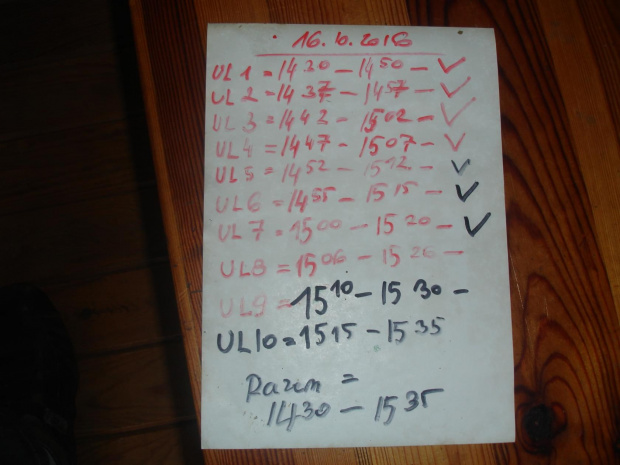 16.10.2016
UL1 = 14 30 – 14 50 – ✓
UL2 = 14 37 – 14 57 – ✓
UL3 = 14 42 – 15 02 – ✓
UL4 = 14 47 – 15 07 – ✓
UL5 = 14 52 – 15 12 – ✓
UL6 = 14 55 – 15 15 – ✓
UL7 = 15 00 – 15 20 – ✓
UL8 = 15 06 – 15 26 –
UL9 = 15 10 – 15 30 –
UL10 = 15 15 – 15 35
Razem =
14 30 – 15 35